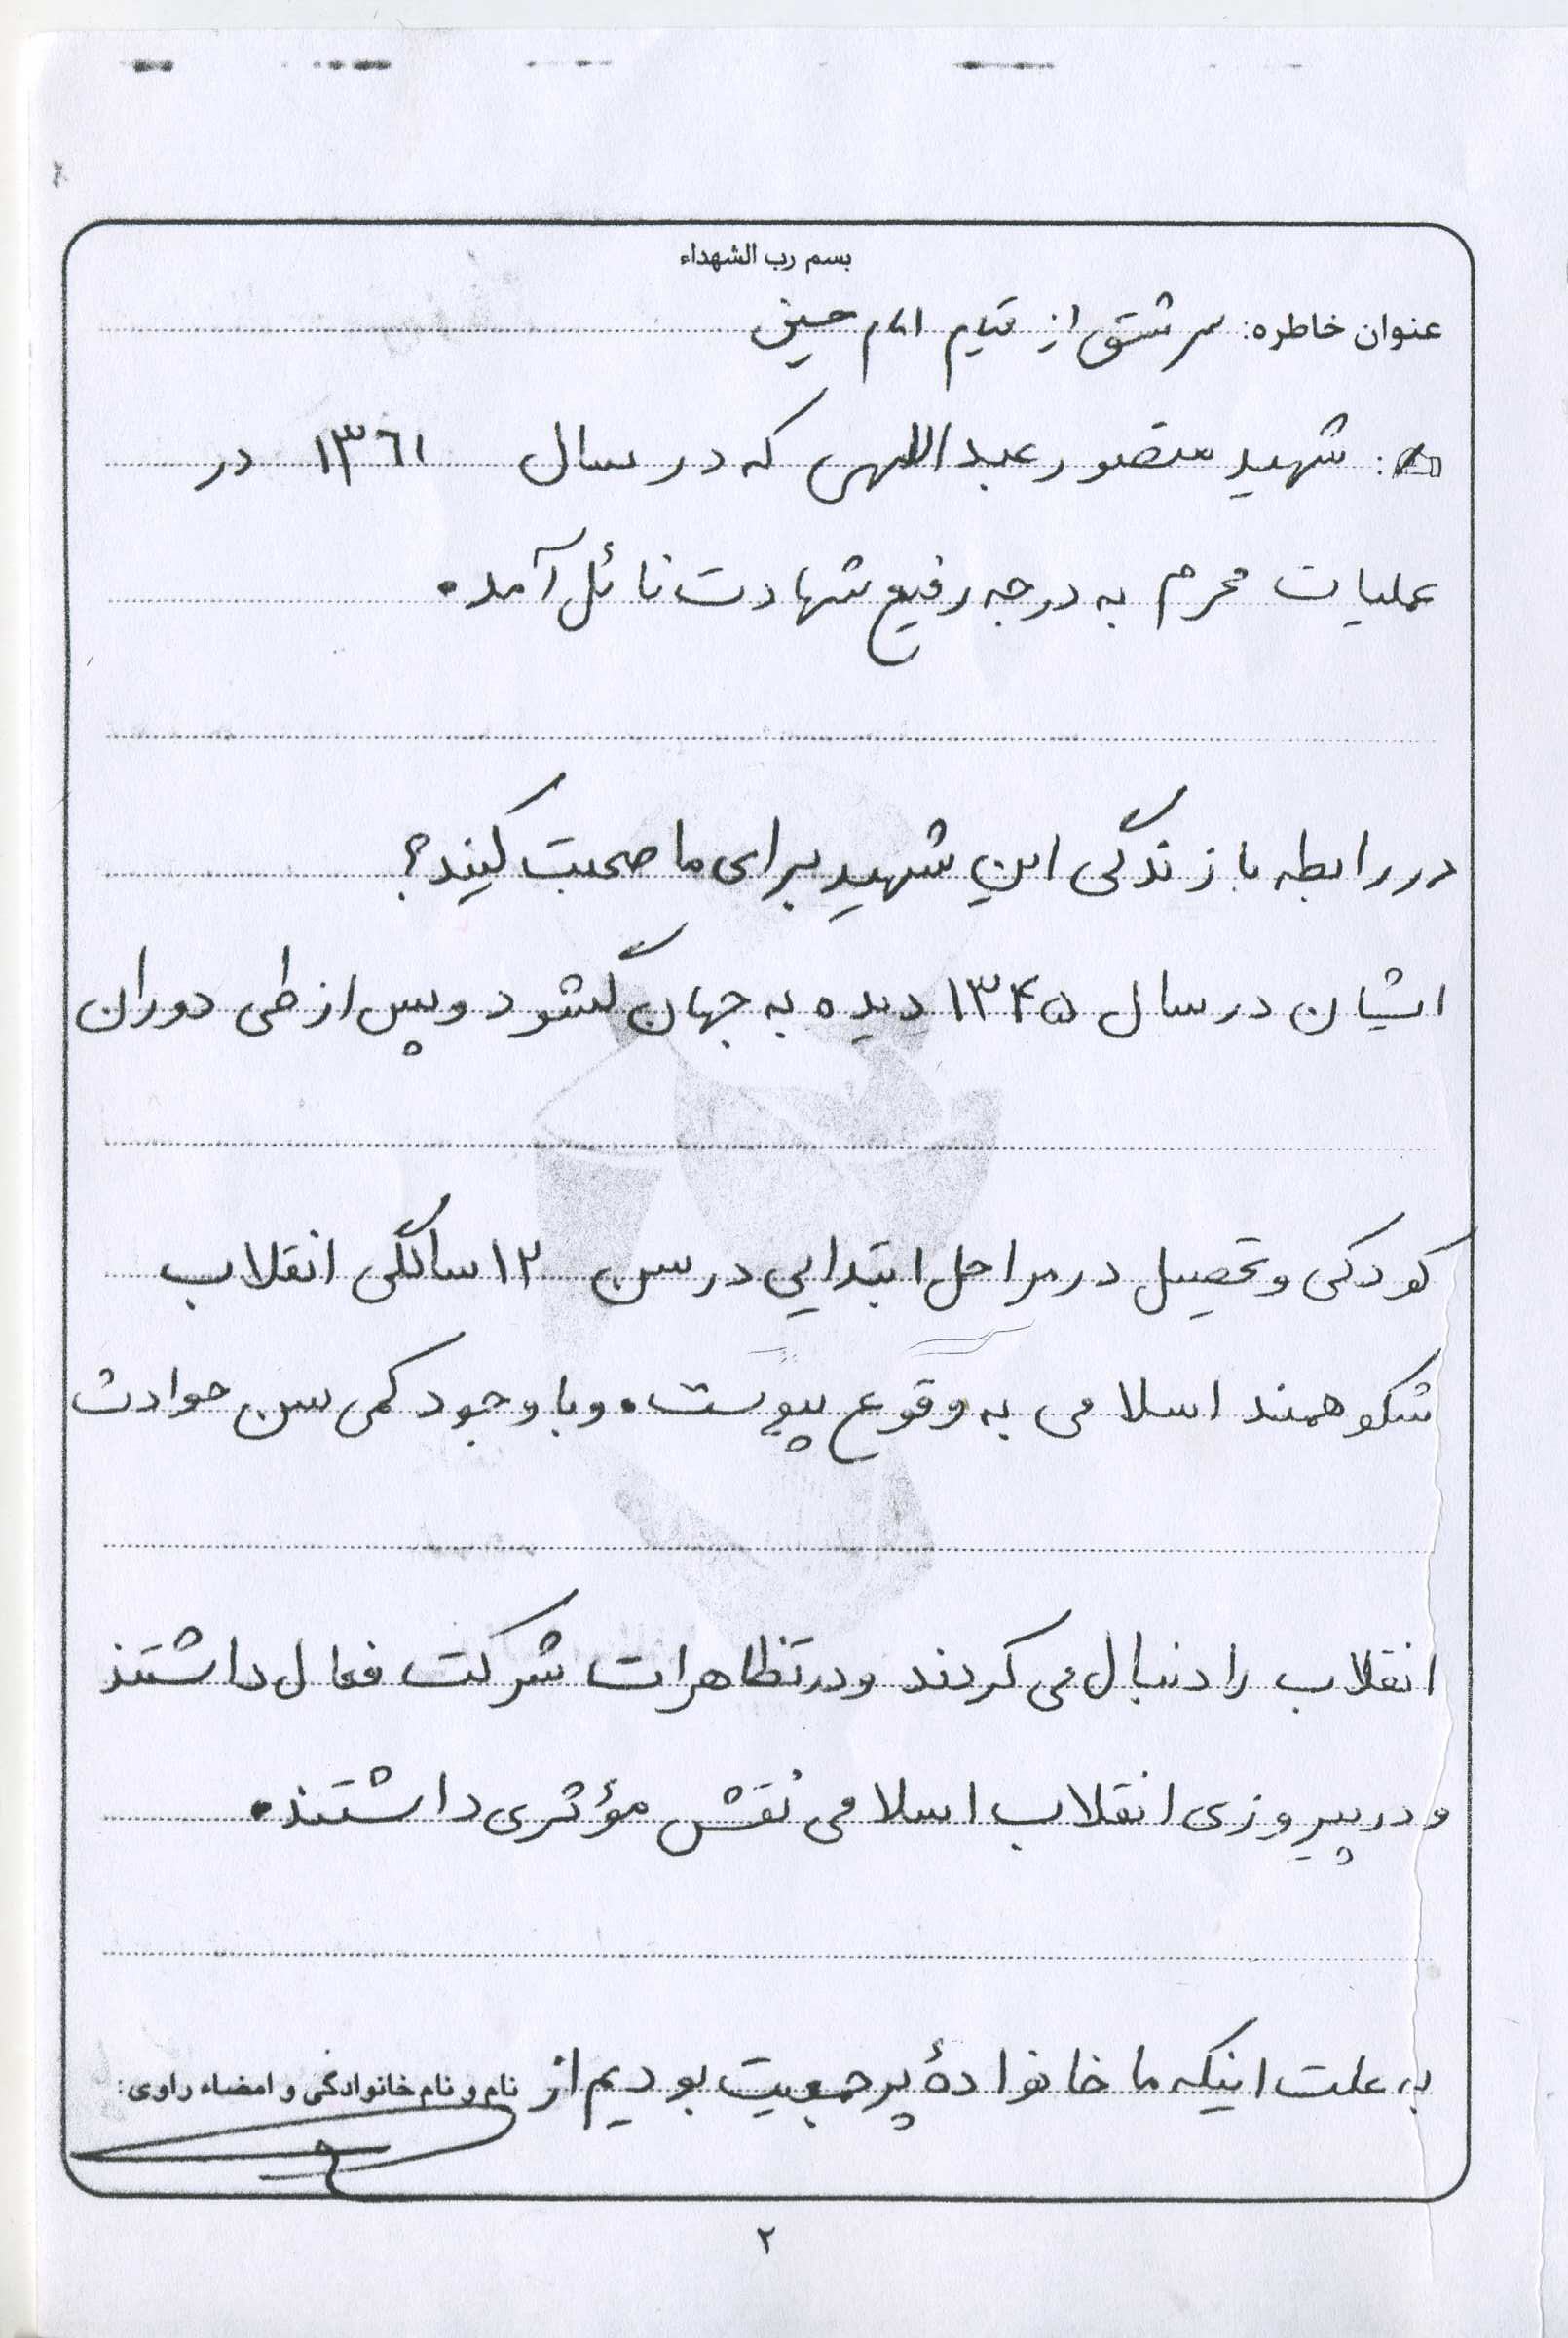 بسم رب الشهداء
عنوان خاطره: سرمشق از قیام امام حسین
: شهید منصور عبداللهی که در سال ۱۳۶۱ در
عملیات محرم به درجه رفیع شهادت نائل آمد.
در رابطه با زندگی این شهید برای ما صحبت کنید؟
ایشان در سال ۱۳۴۵ دیده به جهان گشود و پس از طی دوران
کودکی و تحصیل در مراحل ابتدایی در سن ۱۲ سالگی انقلاب
شکوهمند اسلامی به وقوع پیوست. و با وجود کمی سن حوادث
انقلاب را دنبال می کردند و در تظاهرات شرکت فعال داشتند
و در پیروزی انقلاب اسلامی نقش مؤثری داشتند.
به علت اینکه ما خانوادهٔ پرجمعیت بودیم از
نام و نام خانوادگی و امضاء راوی:
۲